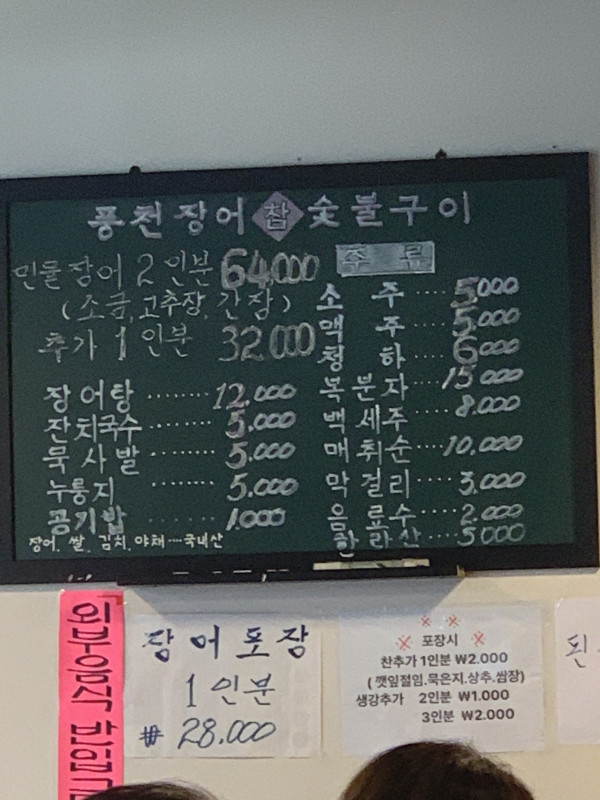 풍천장어 참 숯불구이
민물장어 2 인분 64,000
(소금, 고추장, 간장)
추가 1 인분 32,000
장어탕 ········ 12.000
잔치국수 ········ 5.000
묵사발 ········ 5.000
누룽지 ········ 5.000
공기밥 ········ 1.000
장어, 쌀, 김치, 야채···국내산
주류
소주 ···· 5000
맥주 ···· 5000
청하 ···· 6000
복분자 ···· 15000
백세주 ···· 8.000
매취순 ···· 10,000
막걸리 ···· 3.000
음료수 ···· 2.000
한라산 ···· 5000
외부음식 반입
장어포장
1 인분
₩ 28.000
※ ※ ※
포장시
찬추가 1인분 ₩2.000
( 깻잎절임.묵은지.상추.쌈장)
생강추가 2인분 ₩1.000
3인분 ₩2.000
된